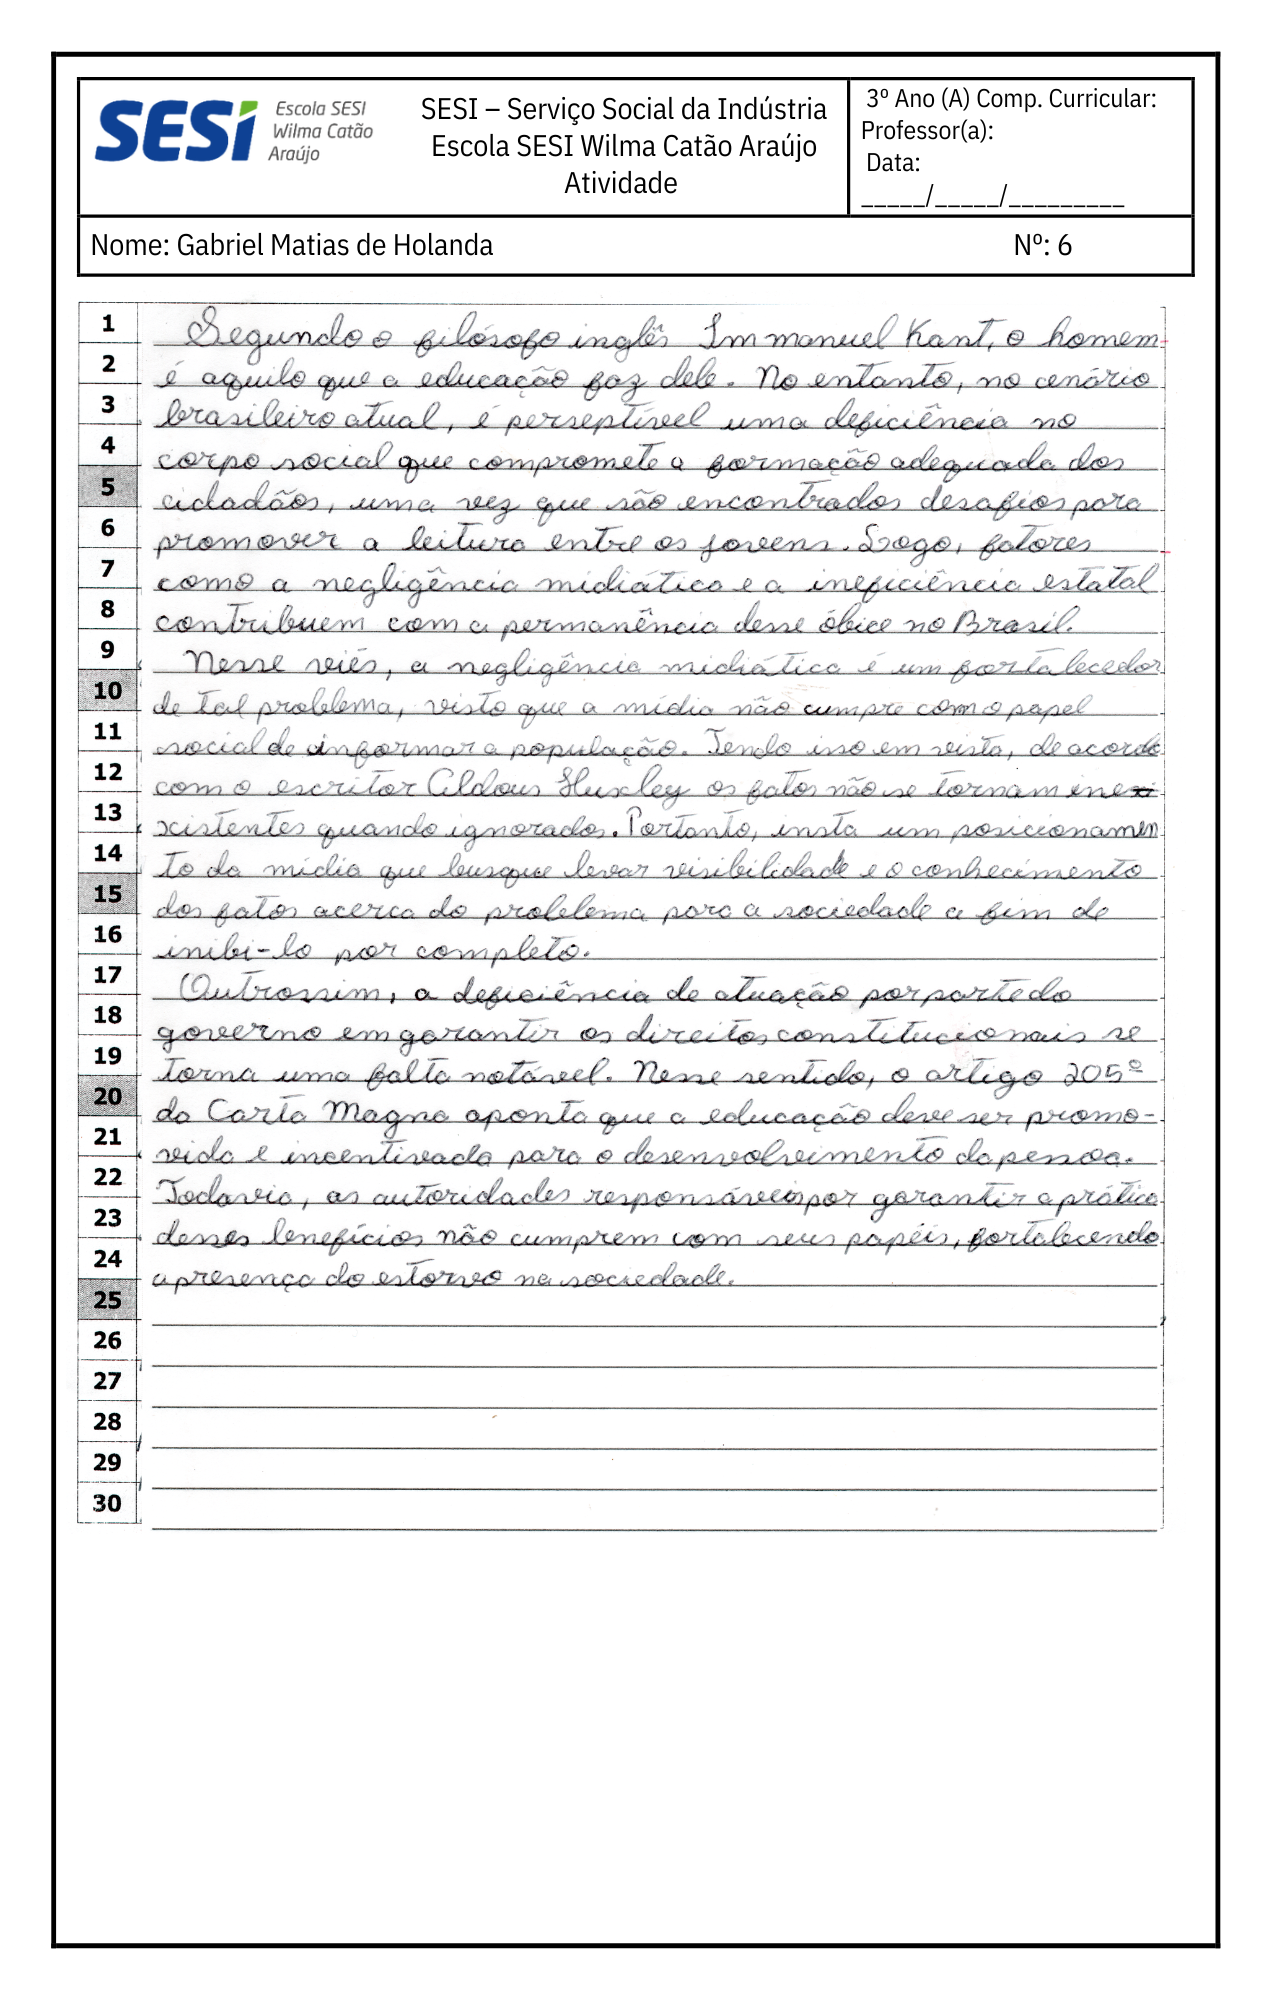 SESI
Escola SESI
Wilma Catão
Araújo
SESI – Serviço Social da Indústria
Escola SESI Wilma Catão Araújo
Atividade
3º Ano (A) Comp. Curricular:
Professor(a):
Data:
_____/_____/_________
Nome: Gabriel Matias de Holanda Nº: 6
1 Segundo o filósofo inglês Immanuel Kant, o homem
2 é aquilo que a educação faz dele. No entanto, no cenário
3 brasileiro atual, é perseptível uma deficiência no
4 corpo social que compromete a formação adequada dos
5 cidadãos, uma vez que são encontrados desafios para
6 promover a leitura entre os jovens. Logo, fatores
7 como a negligência midiática e a ineficiência estatal
8 contribuem com a permanência desse óbice no Brasil.
9 Nesse viés, a negligência midiática é um fortalecedor
10 de tal problema, visto que a mídia não cumpre com o papel
11 social de informar a população. Tendo isso em vista, de acordo
12 com o escritor Aldous Huxley os fatos não se tornam ine
13 xistentes quando ignorados. Portanto, insta um posicionamen
14 to da mídia que busque levar visibilidade e o conhecimento
15 dos fatos acerca do problema para a sociedade a fim de
16 inibi-lo por completo.
17 Outrossim, a deficiência de atuação por parte do
18 governo em garantir os direitos constitucionais se
19 torna uma falta notável. Nesse sentido, o artigo 205º
20 da Carta Magna aponta que a educação deve ser promo-
21 vida e incentivada para o desenvolvimento da pessoa.
22 Todavia, as autoridades responsáveis por garantir a prática
23 desses benefícios não cumprem com seus papéis, fortalecendo
24 a presença do estorvo na sociedade.
25
26
27
28
29
30